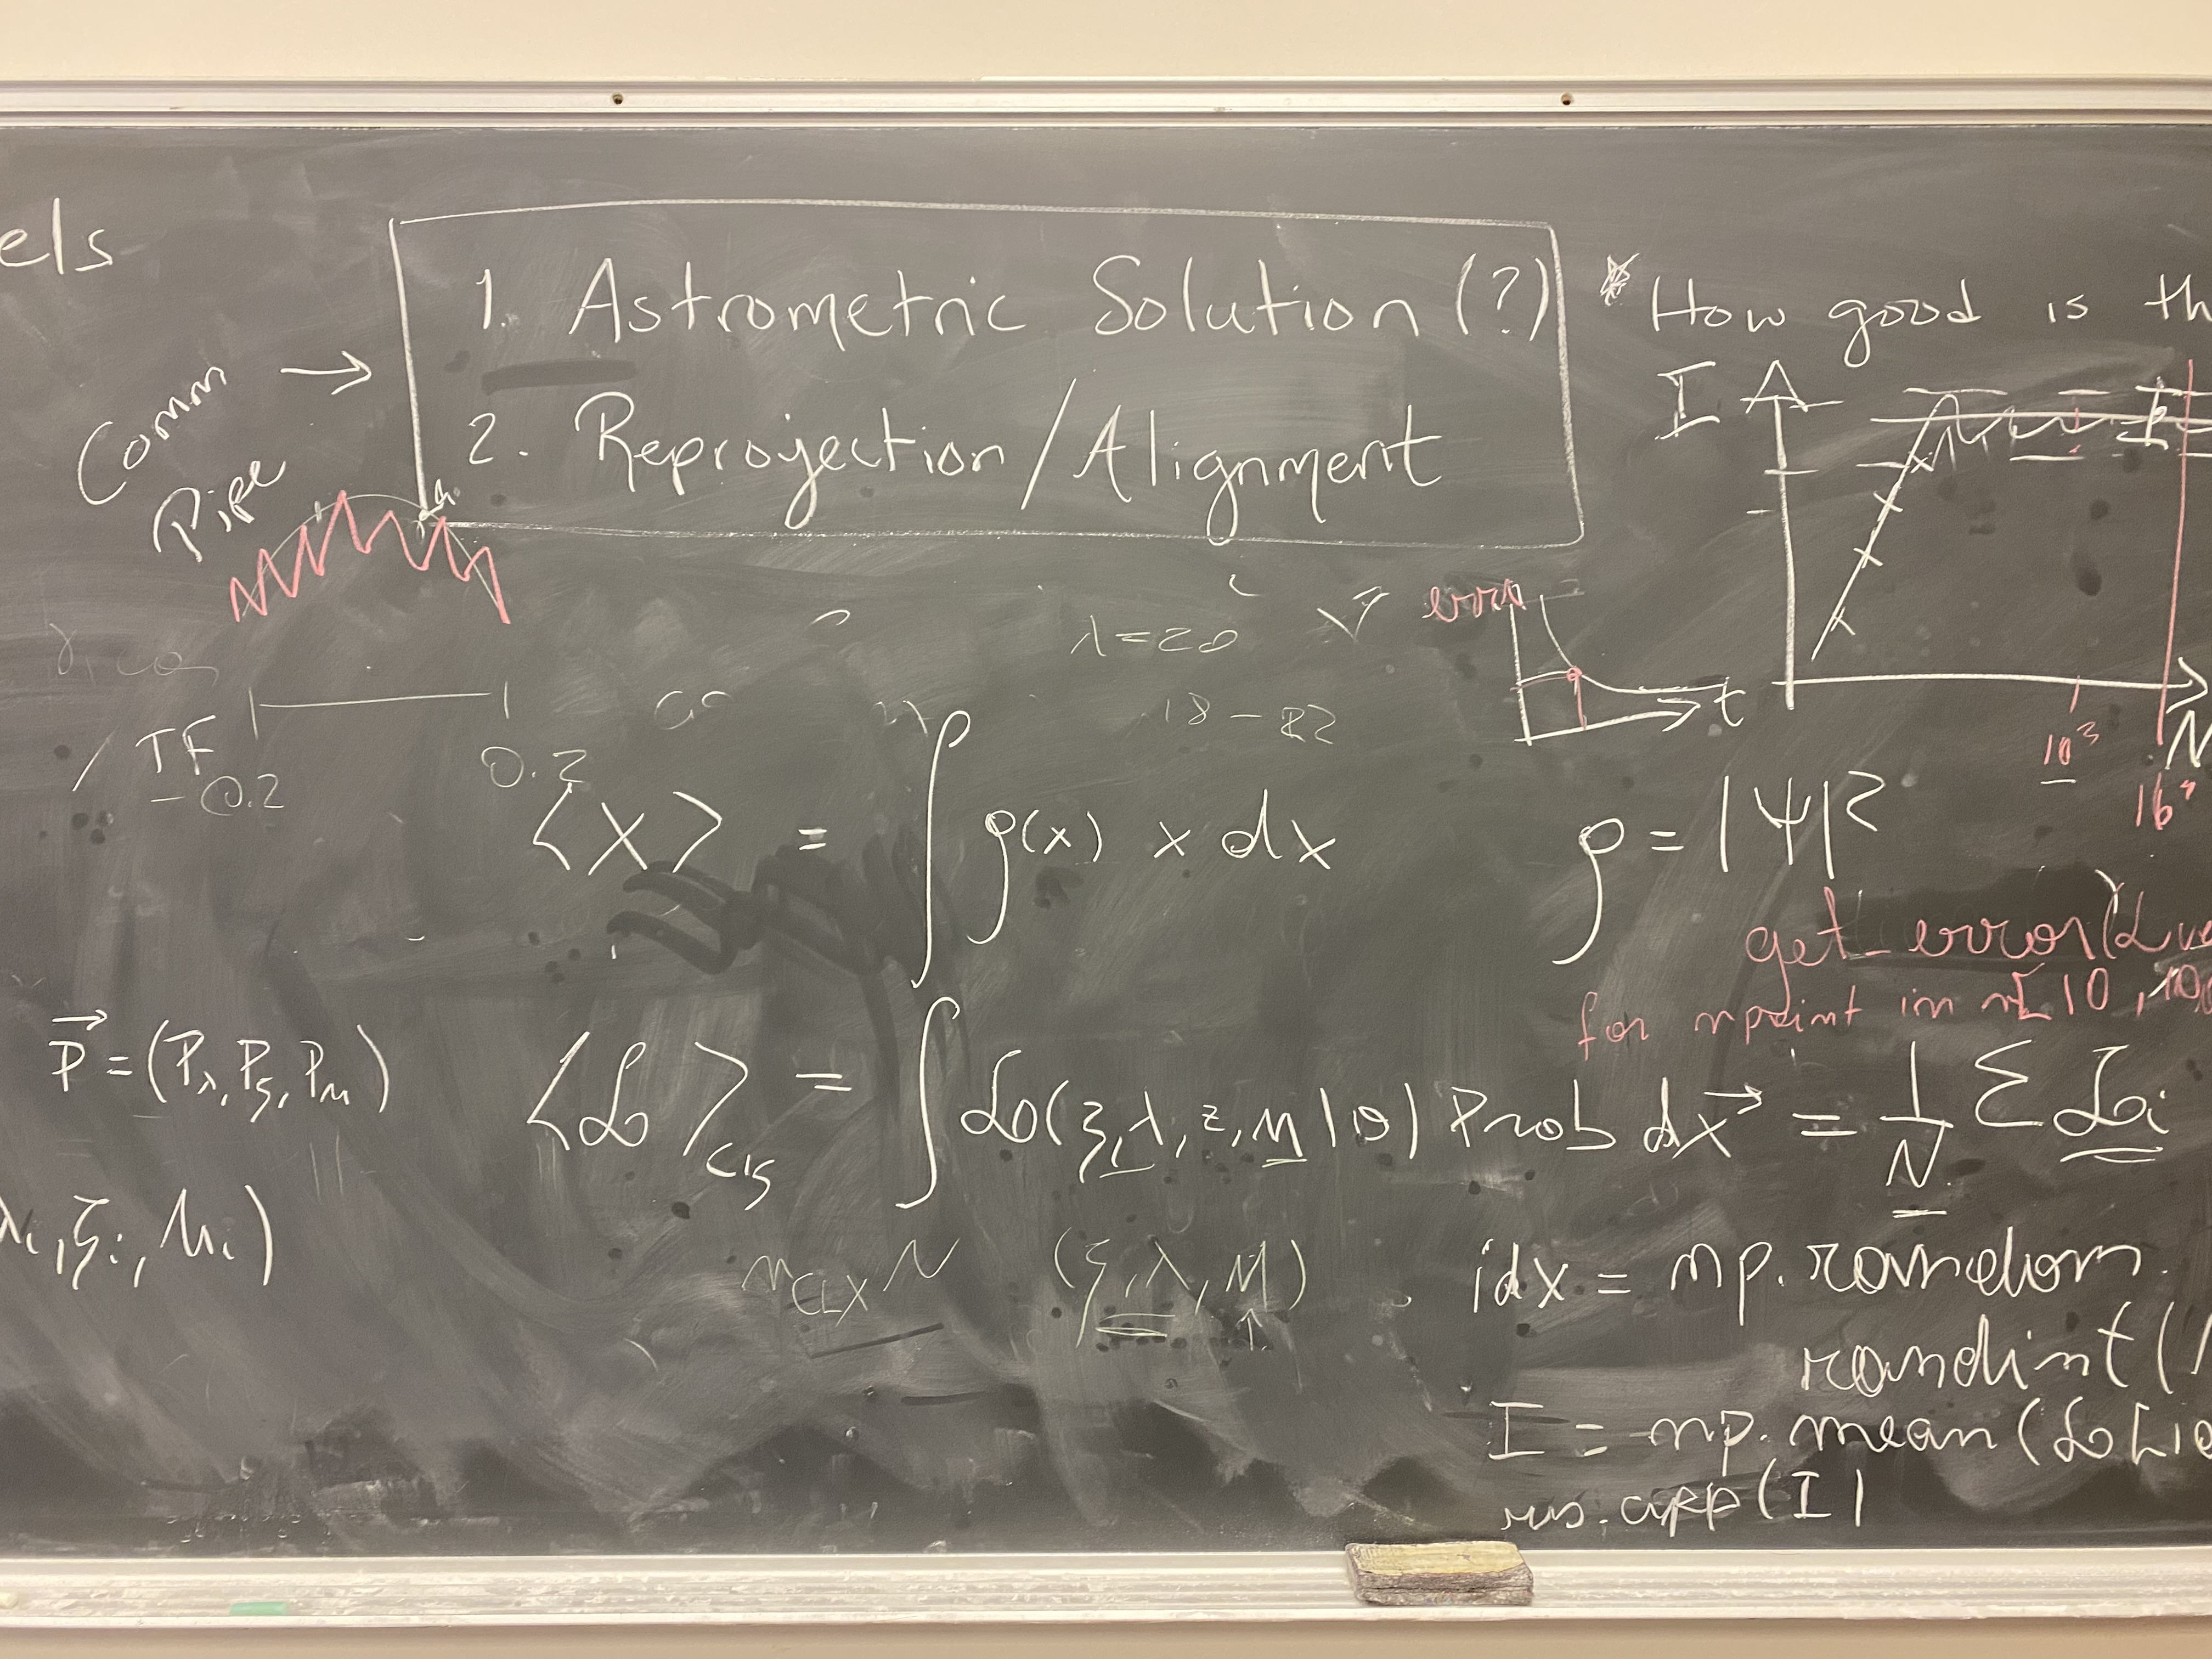 els
1. Astrometric Solution (?)
2. Reprojection/Alignment
Comm →
Pipe
* How good is th
I
erro
t
10³
N
λ=20
18 – 22
TF
−0.2
0.2
⟨x⟩ = ∫ ρ(x) x dx
ρ = |Ψ|²
get_error(
for npoint in [10, 10
P⃗ = (Pλ, Pξ, Pμ)
⟨ℒ⟩ = ∫ ℒ(ξ, λ, z, μ | θ) Prob dx⃗ = 1/N Σ ℒi
λi, ξi, μi)
(ξ, λ, μ)
idx = np.random.
randint(
I = np.mean(ℒ[id
res.app(I)